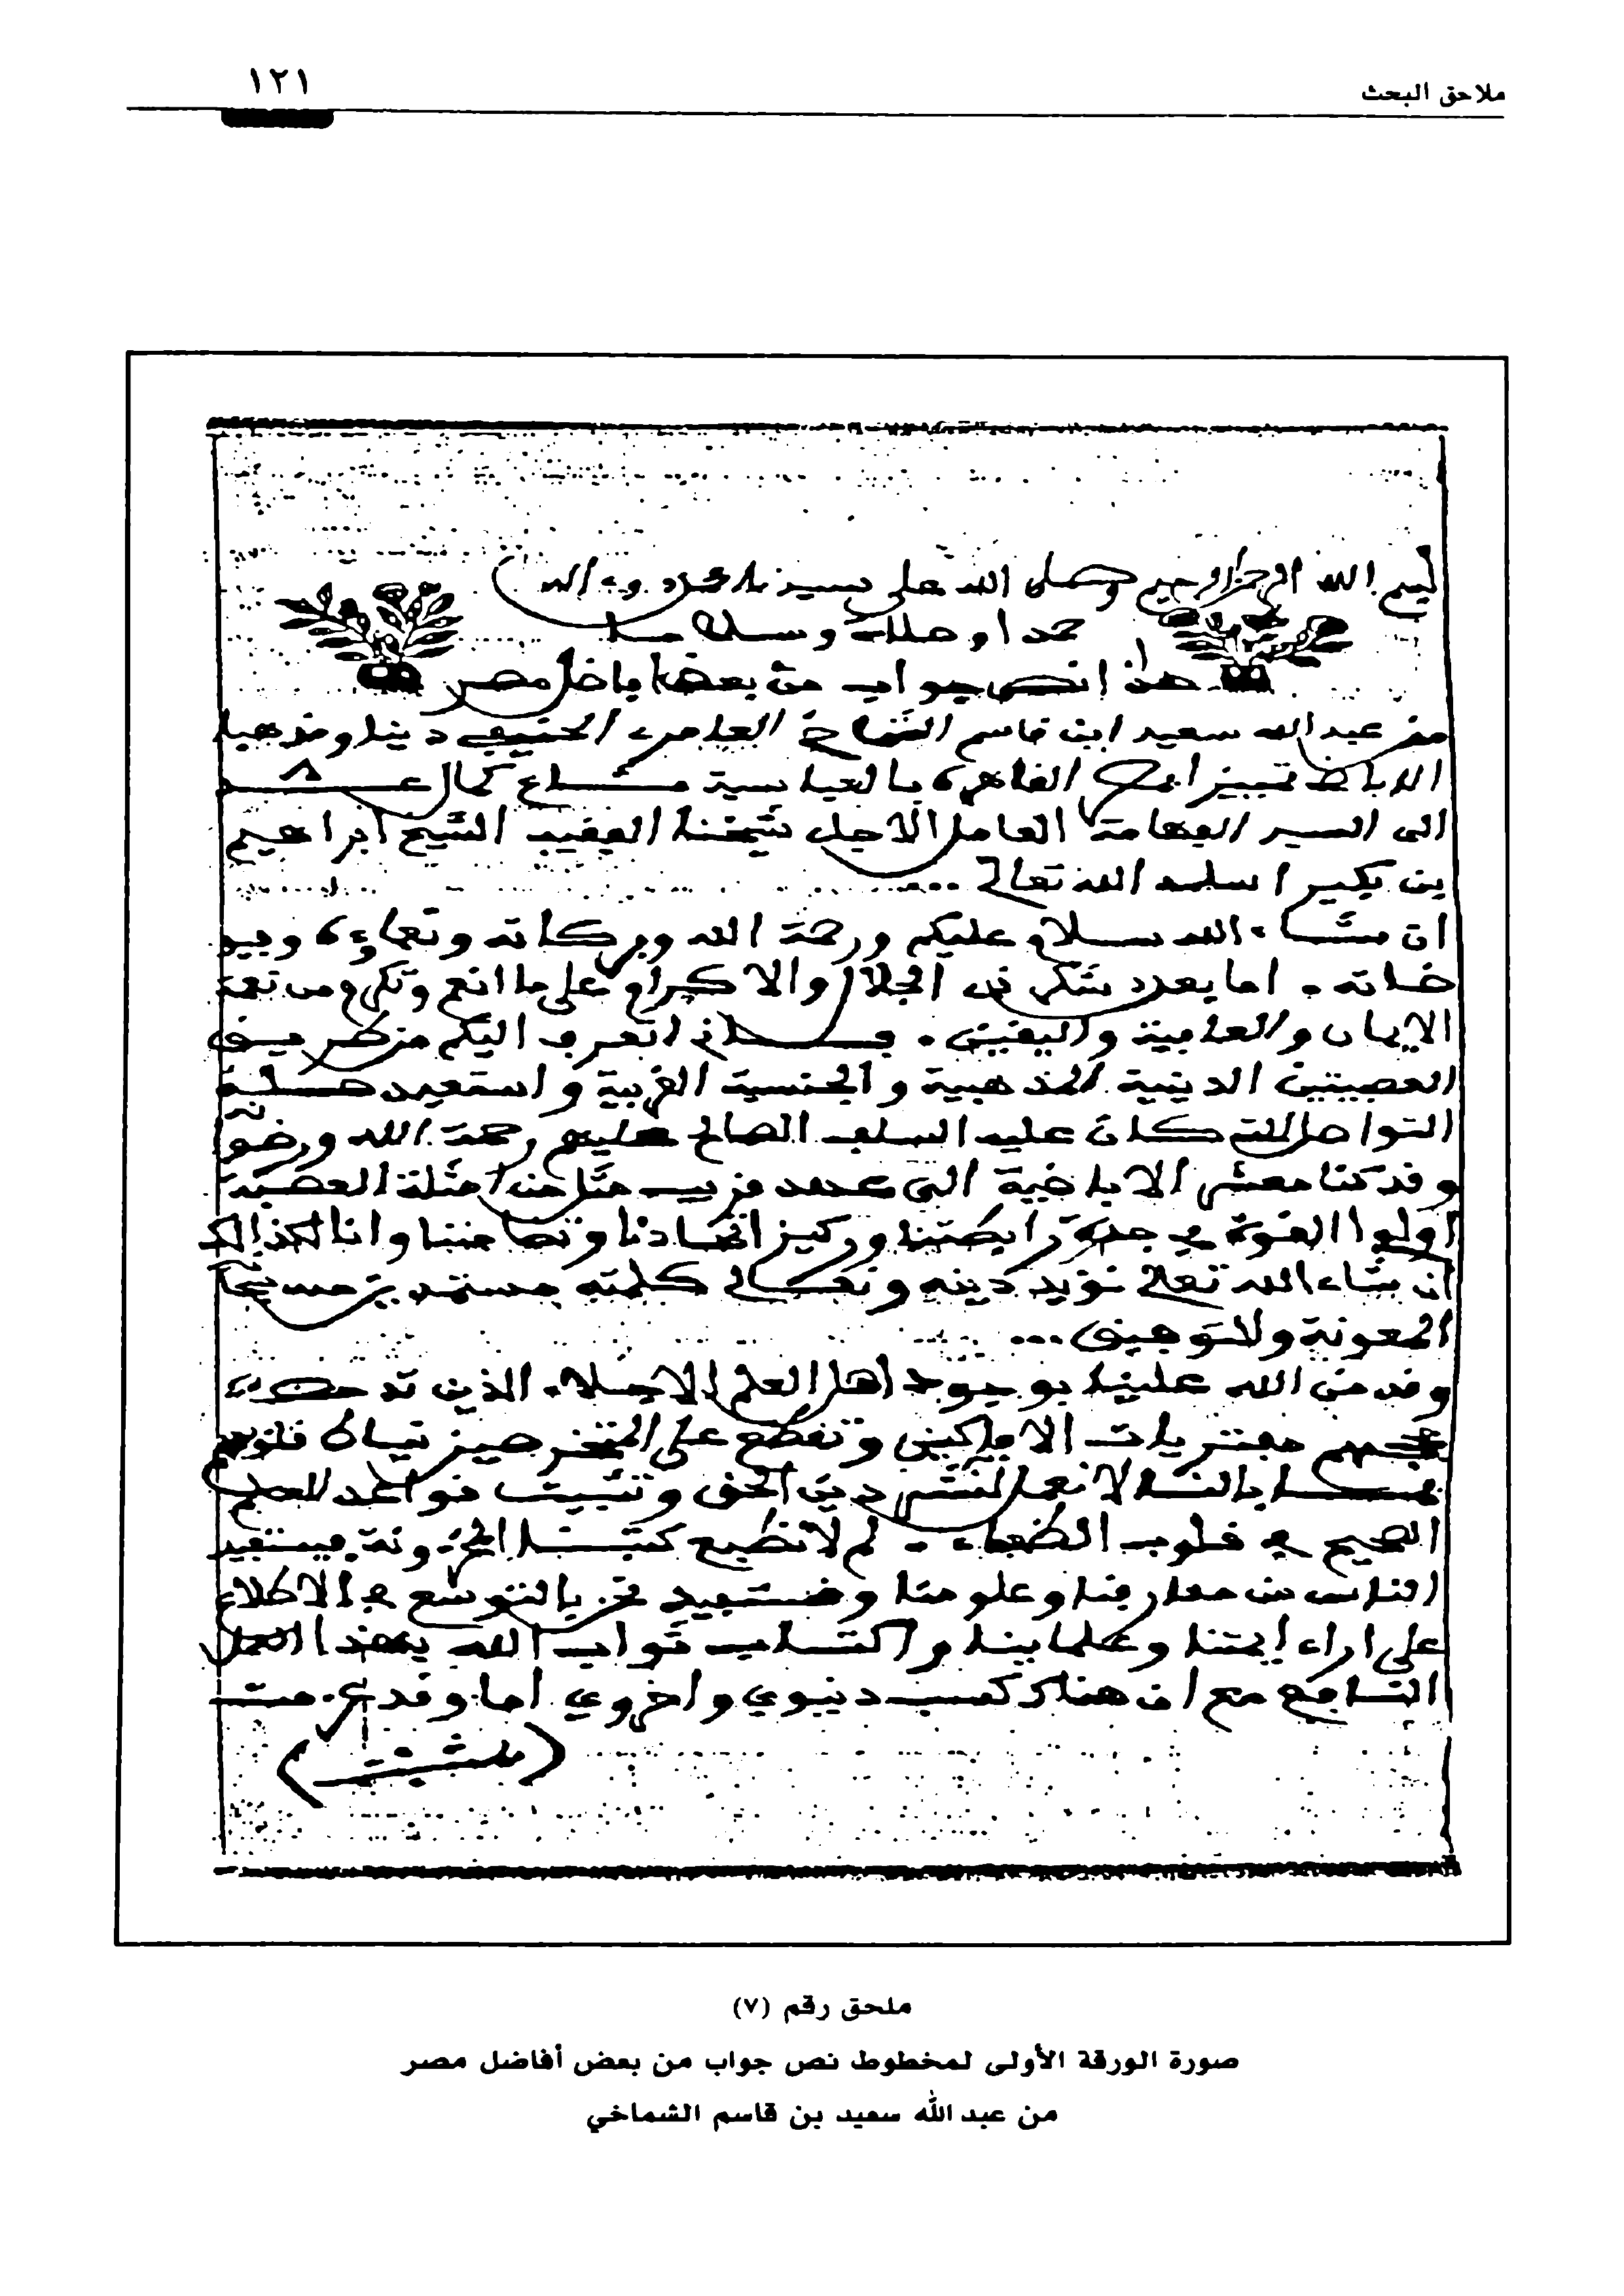 ملاحق البحث
١٢١
بسم الله الرحمن الرحيم وصلى الله على سيدنا محمد وءاله
حمدا وصلاة وسلاما
هذا نص جواب من بعض أفاضل مصر
من عبد الله سعيد ابن قاسم الشماخي العامري الحنيفي دينا ومذهبا
الاباضي القاهرة بالعباسية
الى السيد الفهامة العامل الاجل شيخنا الفقيه الشيخ ابراهيم
بن بكير اسلمه الله تعالى ...
ان شاء الله سلام عليكم ورحمة الله وبركاته وتحياته وفيو
ضاته . اما بعد شكر ذي الجلال والاكرام على ما انعم وتكرم من نعمة
الايمان والعافية واليقين . اتعرف اليكم من طريق
العصبتين الدينية المذهبية والجنسية الغربية واستعيد صلة
التواصل التي كان عليه السلف الصالح عليهم رحمة الله ورضوانه
وقد كنا معشر الاباضية الى عهد قريب مثلا من امثلة العصبية
اولوا القوة في رابطتنا واتحادنا وتضامننا وانا لكذالك
ان شاء الله تعالى نؤيد دينه كلمته مستمدين منه
المعونة والتوفيق ...
وقد من الله علينا بوجود اهل العلم الاجلاء الذين تدحض
حججهم مفتريات الافاكين وتقطع على المتخرصين نياط قلوبهم
لنشر دين الحق وتثبيت قواعد العلم
الصحيح في قلوب الضعفاء . لم لا نطبع كتبنا المخزونة فيستفيد
الناس من معارفنا وعلومنا ونستفيد نحن بالتوسع في الاطلاع
على اراء ايمتنا وعلماينا واكتساب ثواب الله بهذا العمل
النافع مع ان هناك كسب دنيوي واخروي اما وقد
ملحق رقم (٧)
صورة الورقة الأولى لمخطوط نص جواب من بعض أفاضل مصر
من عبد الله سعيد بن قاسم الشماخي